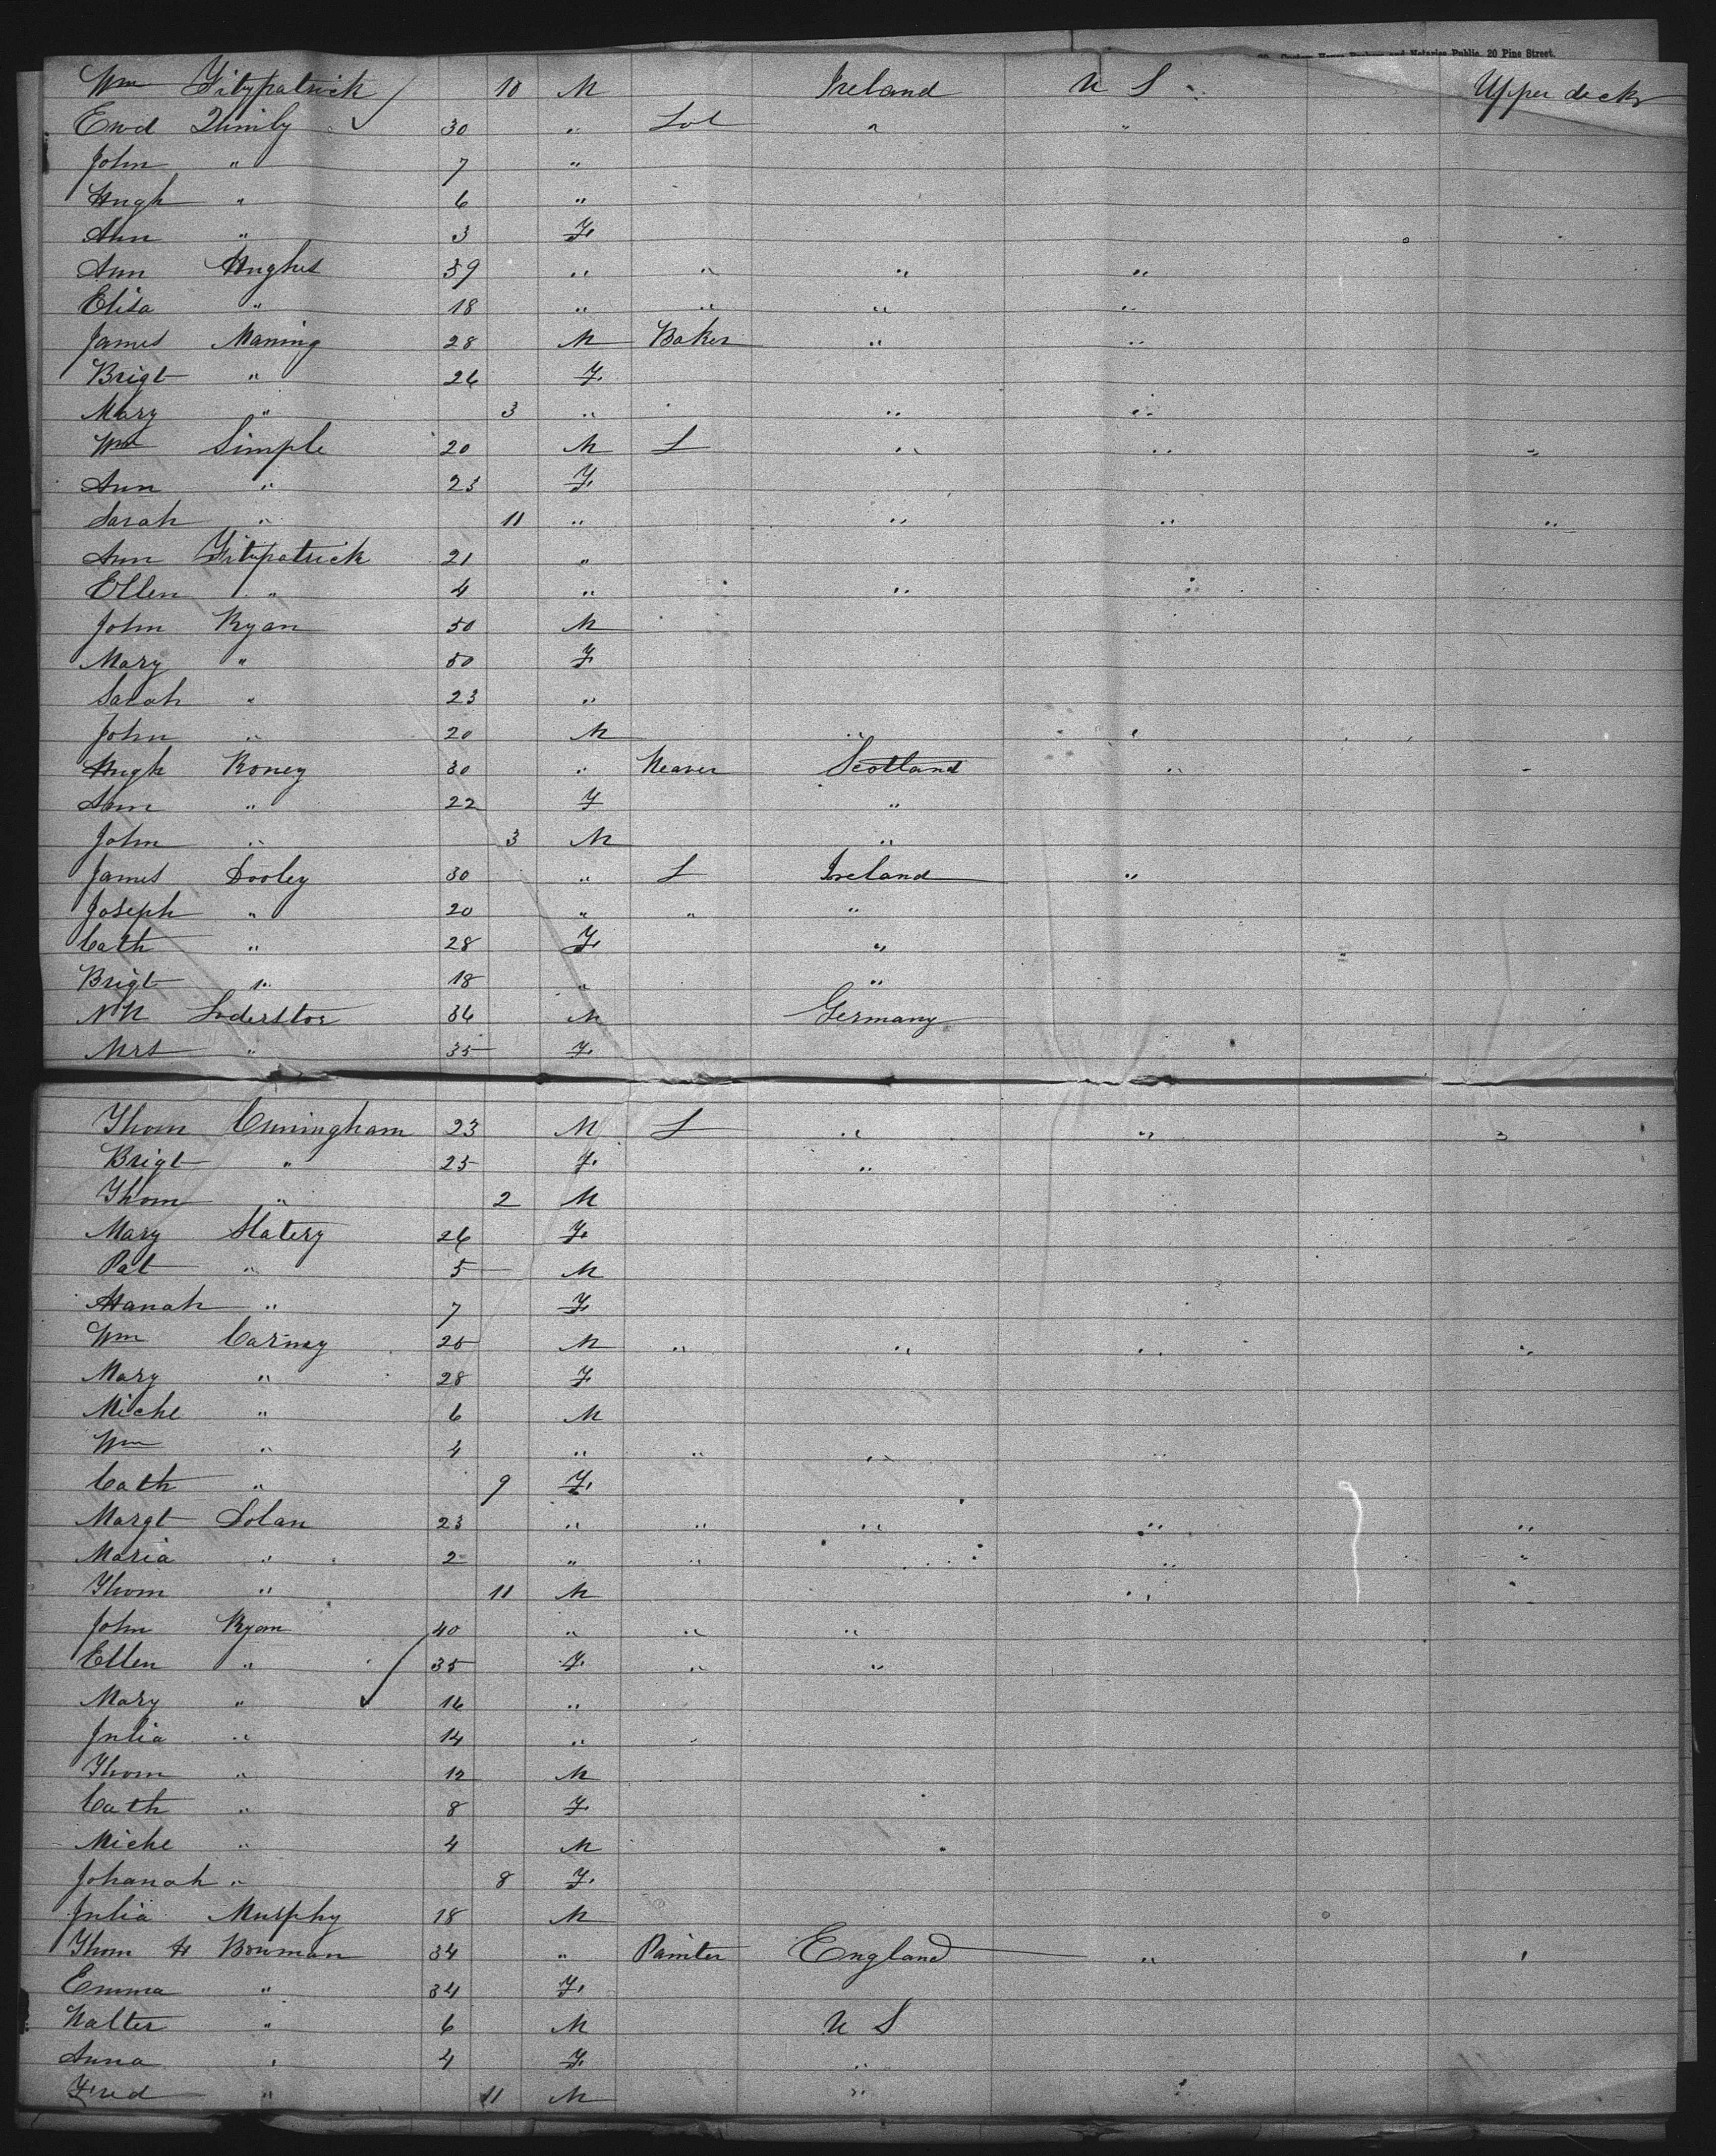 20 Pine Street.
Wm Fitzpatrick 10 M Ireland U S Upper deck
Ewd 30 " " "
John " 7 "
Hugh " 6 "
Ann " 3 F.
Ann Hughes 39 " " " "
Elisa " 18 " " " "
James Maning 28 M Baker " "
Brigt " 26 F.
Mary " 3 " " "
Wm Simple 20 M L " " "
Ann " 23 F.
Sarah " 11 " " " "
Ann Fitzpatrick 21 "
Ellen " 4 " " "
John Ryan 50 M
Mary " 50 F
Sarah " 23 "
John " 20 M " "
Hugh Roney 30 " Weaver Scotland " "
Ann " 22 F "
John " 3 M "
James Dooley 30 " L Ireland "
Joseph " 20 " " "
Cath " 28 F. "
Brigt " 18 " "
NN 36 M Germany
Mrs " 35 F.
Thom Cuningham 23 M L " " "
Brigt " 25 F. "
Thom " 2 M
Mary Slatery 26 F.
Pat " 5 M
Hanah " 7 F.
Wm Carney 25 M " " " "
Mary " 28 F.
Michl " 6 M
Wm " 4 " " " "
Cath " 9 F.
Margt Dolan 23 " " " " "
Maria " 2 " " " "
Thom " 11 M "
John Ryan 40 " " "
Ellen " 35 F. " "
Mary " 16 "
Julia " 14 "
Thom " 12 M
Cath " 8 F.
Michl " 4 M
Johanah " 8 F.
Julia Murphy 18 M
Thom H Bowman 34 " Painter England " "
Emma " 34 F.
Walter " 6 M U S
Anna " 4 F. "
Fred " 11 M " "